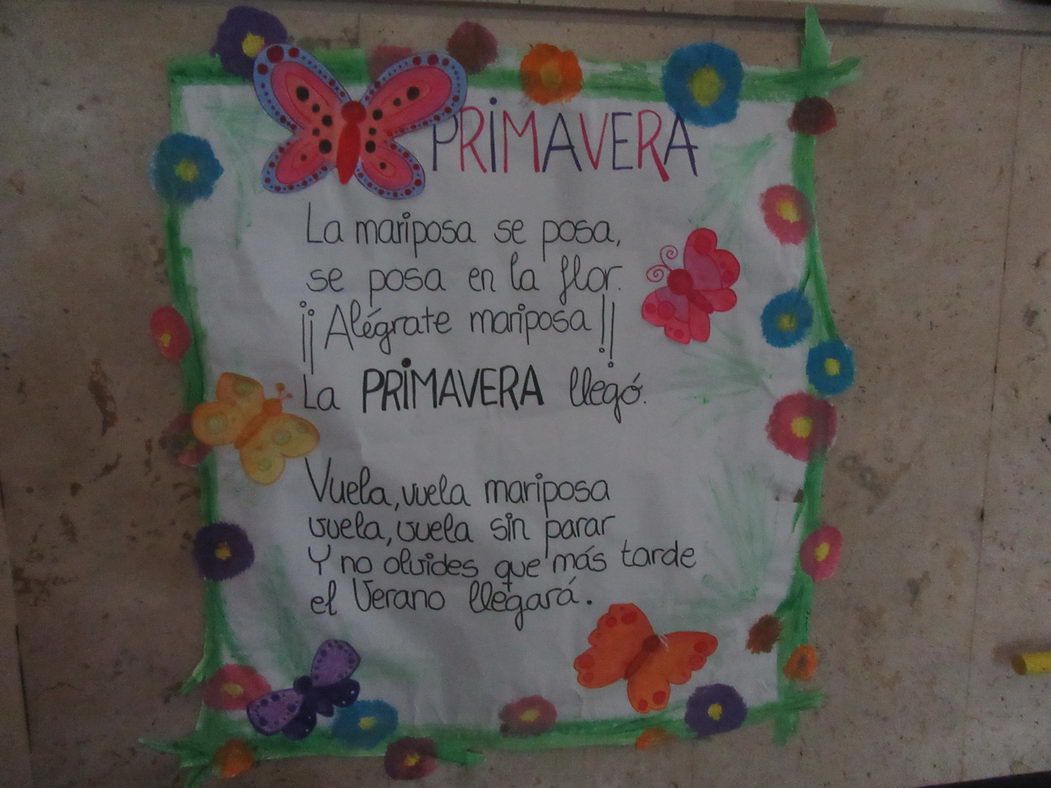 PRIMAVERA
La mariposa se posa,
se posa en la flor.
¡¡Alégrate mariposa!!
La PRIMAVERA llegó.
Vuela, vuela mariposa
vuela, vuela sin parar
Y no olvides que más tarde
el Verano llegará.